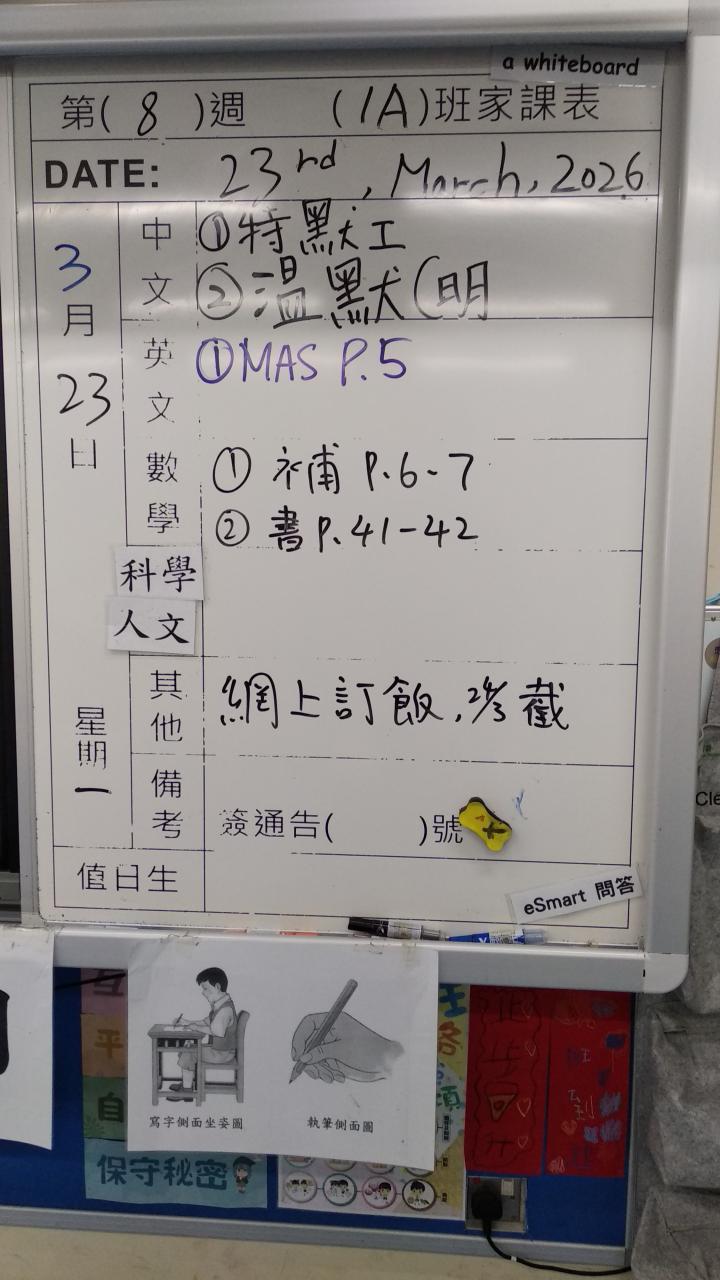 a whiteboard
第( 8 )週 (1A)班家課表
DATE: 23rd, March, 2026
3月23日 星期一
中文 ①特默工
②溫默(明
英文 ①MAS P.5
數學 ① 補 P.6-7
② 書P.41-42
科學
人文
其他 網上訂飯, 26/3 截
備考 簽通告( )號
值日生
eSmart 問答
寫字側面坐姿圖 執筆側面圖
平
自
保守秘密